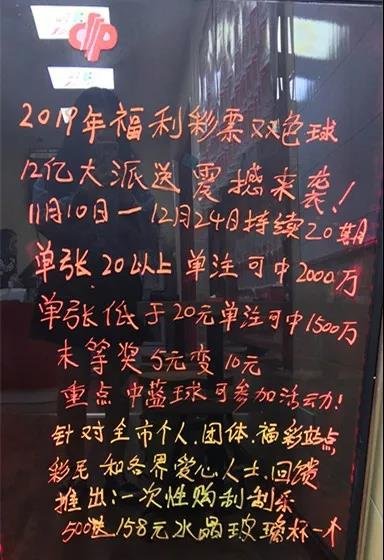 2019年福利彩票双色球
12亿大派送 震撼来袭!
11月10日一12月24日持续20期
单张20以上单注可中2000万
单张低于20元单注可中1500万
末等奖5元变10元
重点中蓝球可参加活动!
针对全市个人.团体.福彩站点
彩民和各界爱心人士.回馈
推出:一次性购刮刮乐
500送158元水晶玻璃杯一个